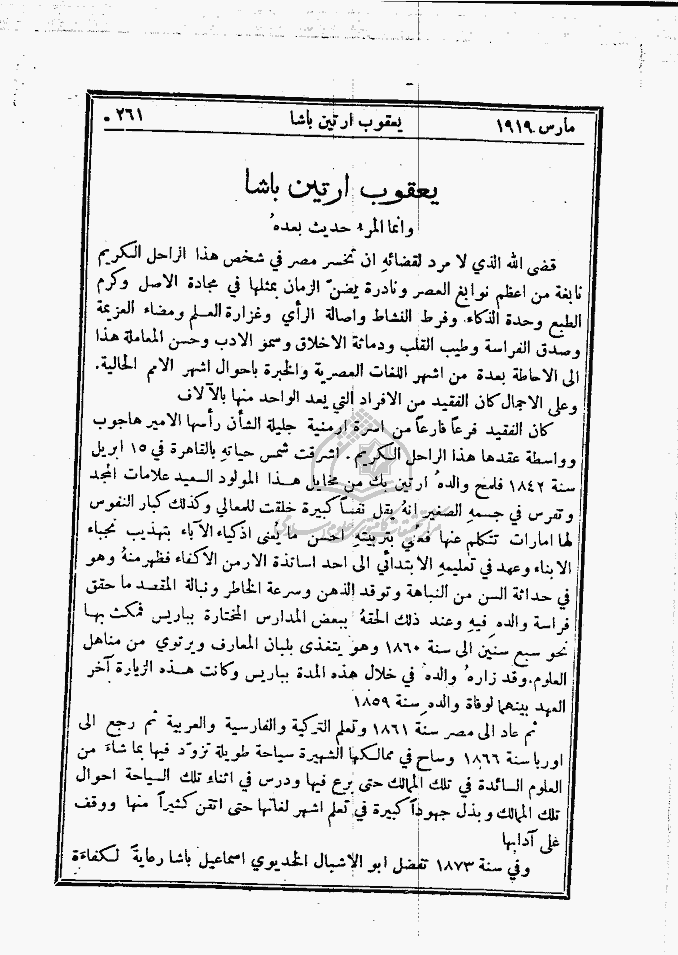 مارس ١٩١٩ يعقوب ارتين باشا ٢٦١
يعقوب ارتين باشا
وانما المرء حديث بعدهُ
قضى الله الذي لا مرد لقضائهِ ان تخسر مصر في شخص هذا الراحل الكريم
نابغة من اعظم نوابغ العصر ونادرة يضنّ الزمان بمثلها في مجادة الاصل وكرم
الطبع وحدة الذكاء وفرط النشاط واصالة الرأي وغزارة العلم ومضاء العزيمة
وصدق الفراسة وطيب القلب ودماثة الاخلاق وسمو الادب وحسن المعاملة هذا
الى الاحاطة بعدة من اشهر اللغات العصرية والخبرة باحوال اشهر الامم الحالية.
وعلى الاجمال كان الفقيد من الافراد التي يعد الواحد منها بالآلاف
كان الفقيد فرعاً فارعاً من اسرة ارمنية جليلة الشأن رأسها الامير هاجوب
وواسطة عقدها هذا الراحل الكريم. اشرقت شمس حياتهِ بالقاهرة في ١٥ ابريل
سنة ١٨٤٢ فلمح والدهُ ارتين بك من مخايل هذا المولود السعيد علامات المجد
وتفرس في جسمهِ الصغير انهُ يقل نفساً كبيرة خلقت للمعالي وكذلك كبار النفوس
لها امارات تتكلم عنها فعني بتربيتهِ احسن ما يُعنى اذكياء الآباء بتهذيب نجباء
الابناء وعهد في تعليمهِ الابتدائي الى احد اساتذة الارمن الأكفاء فظهر منهُ وهو
في حداثة السن من النباهة وتوقد الذهن وسرعة الخاطر ونبالة المقصد ما حقق
فراسة والدهِ فيهِ وعند ذلك الحقهُ ببعض المدارس المختارة بباريس فمكث بها
نحو سبع سنين الى سنة ١٨٦٠ وهو يتغذى بلبان المعارف ويرتوي من مناهل
العلوم. وقد زارهُ والدهُ في خلال هذه المدة بباريس وكانت هذه الزيارة آخر
العهد بينهما لوفاة والدهِ سنة ١٨٥٩
ثم عاد الى مصر سنة ١٨٦١ وتعلم التركية والفارسية والعربية ثم رجع الى
اوربا سنة ١٨٦٦ وساح في ممالكها الشهيرة سياحة طويلة تزوّد فيها بما شاء من
العلوم السائدة في تلك الممالك حتى برع فيها ودرس في اثناء تلك السياحة احوال
تلك الممالك وبذل جهوداً كبيرة في تعلم اشهر لغاتها حتى اتقن كثيراً منها ووقف
على آدابها
وفي سنة ١٨٧٣ تفضل ابو الاشبال الخديوي اسماعيل باشا رعايةً لكفاءة